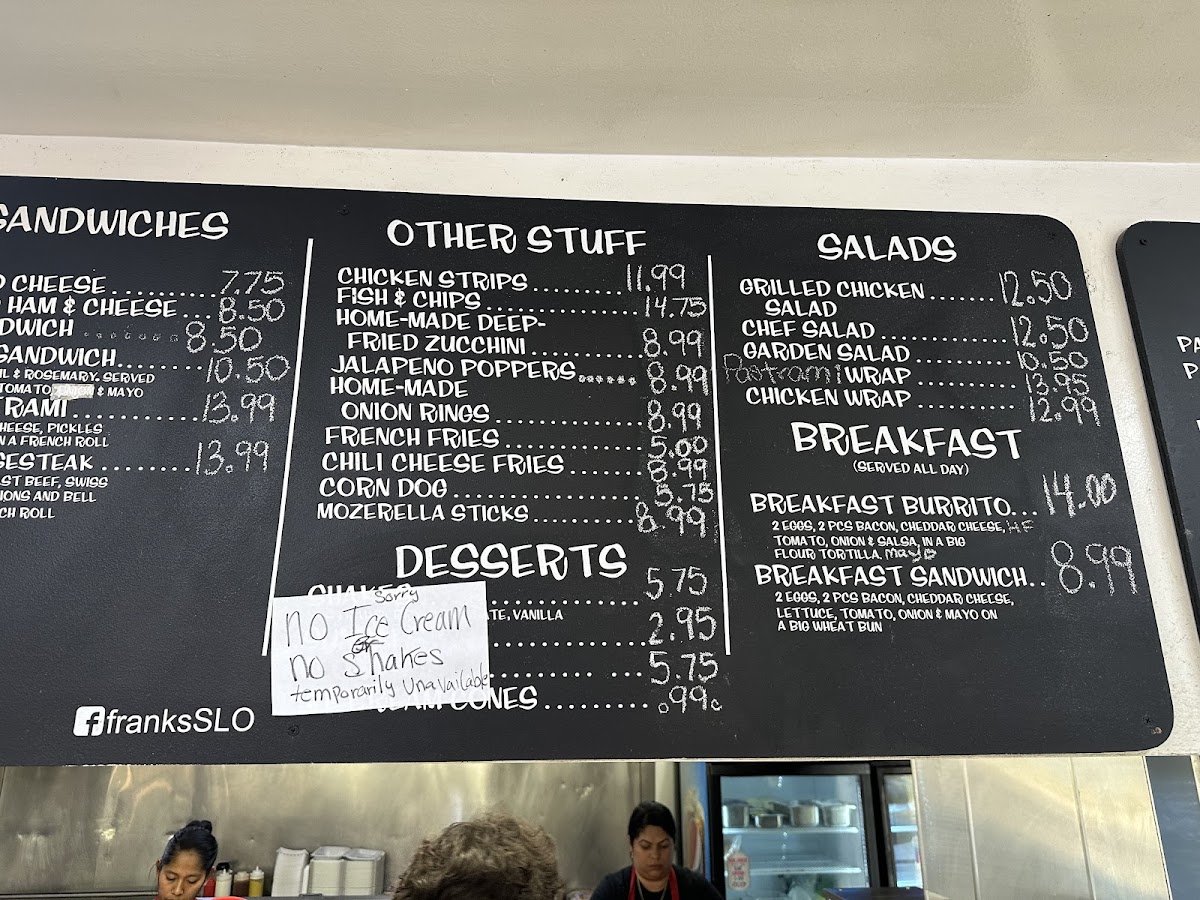 SANDWICHES
CHEESE........ 7.75
HAM & CHEESE... 8.50
8.50
SANDWICH...... 10.50
& ROSEMARY. SERVED
TOMATO & MAYO
13.99
CHEESE, PICKLES
A FRENCH ROLL
13.99
BEEF, SWISS
AND BELL
ROLL
OTHER STUFF
CHICKEN STRIPS......... 11.99
FISH & CHIPS.............. 14.75
HOME-MADE DEEP-
FRIED ZUCCHINI........... 8.99
JALAPENO POPPERS...... 8.99
HOME-MADE
ONION RINGS.............. 8.99
FRENCH FRIES............. 5.00
CHILI CHEESE FRIES....... 8.99
CORN DOG.................. 5.75
MOZERELLA STICKS.......... 8.99
DESSERTS
5.75
VANILLA
2.95
5.75
CONES......... .99¢
Sorry
no Ice Cream
or
no Shakes
temporarily Unavailable
franksSLO
SALADS
GRILLED CHICKEN....... 12.50
SALAD
CHEF SALAD............. 12.50
GARDEN SALAD.......... 10.50
Pastrami WRAP.......... 13.95
CHICKEN WRAP.......... 12.99
BREAKFAST
(SERVED ALL DAY)
BREAKFAST BURRITO... 14.00
2 EGGS, 2 PCS BACON, CHEDDAR CHEESE, HF
TOMATO, ONION & SALSA, IN A BIG
FLOUR TORTILLA. mayo
BREAKFAST SANDWICH.. 8.99
2 EGGS, 2 PCS BACON, CHEDDAR CHEESE,
LETTUCE, TOMATO, ONION & MAYO ON
A BIG WHEAT BUN